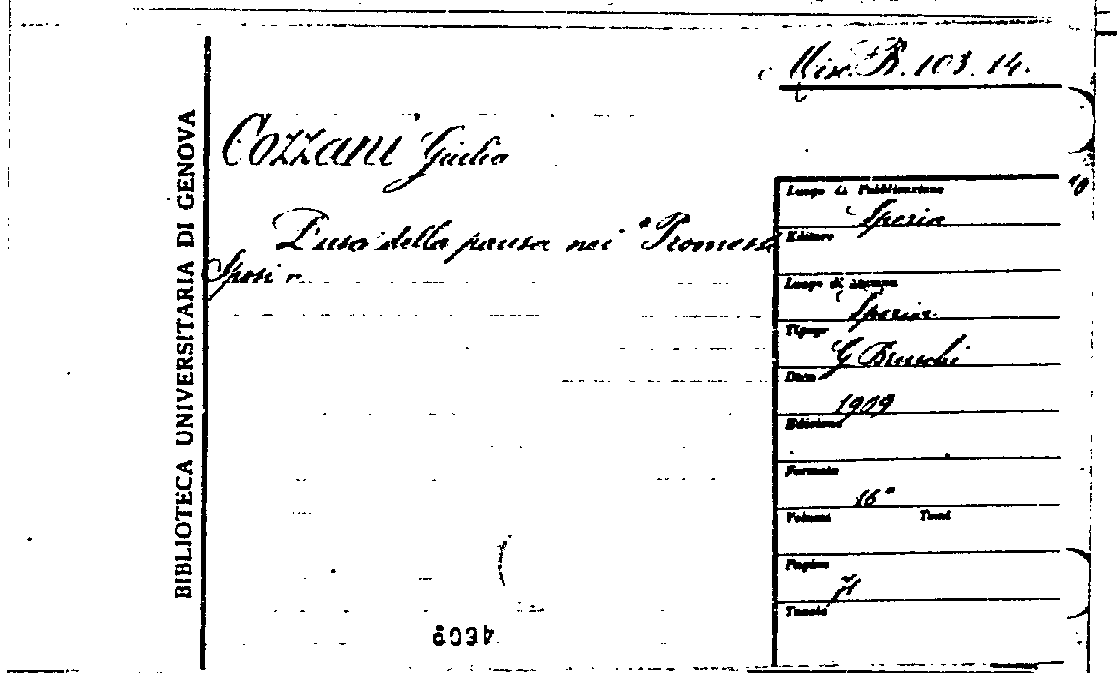 Misc. B. 103. 14.
BIBLIOTECA UNIVERSITARIA DI GENOVA
Cozzani Giulio
L'uso della pausa nei "Promessi
Sposi"
Luogo di Pubblicazione
Spezia
Editore
Luogo di stampa
Spezia
Tipogr.
G Bruschi
Data
1909
Edizione
Formato
16°
Volumi Tomi
Pagine
Tavole
4609